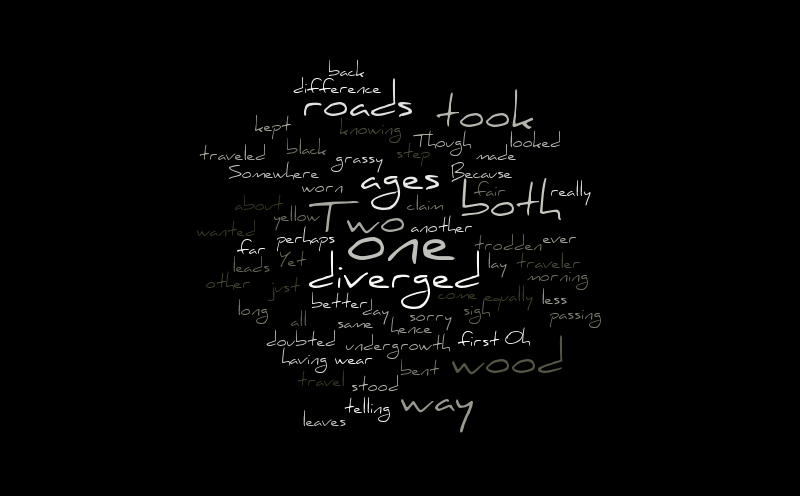 back
difference
roads took
kept knowing
Though looked
traveled black grassy step made
Somewhere worn ages Because
fair both really
about yellow Two claim another
wanted
far perhaps one trodden ever
leads Yet lay traveler
other just diverged morning
better day come equally less
long all same hence sorry sigh passing
doubted undergrowth first Oh
having wear bent wood
travel stood
telling way
leaves